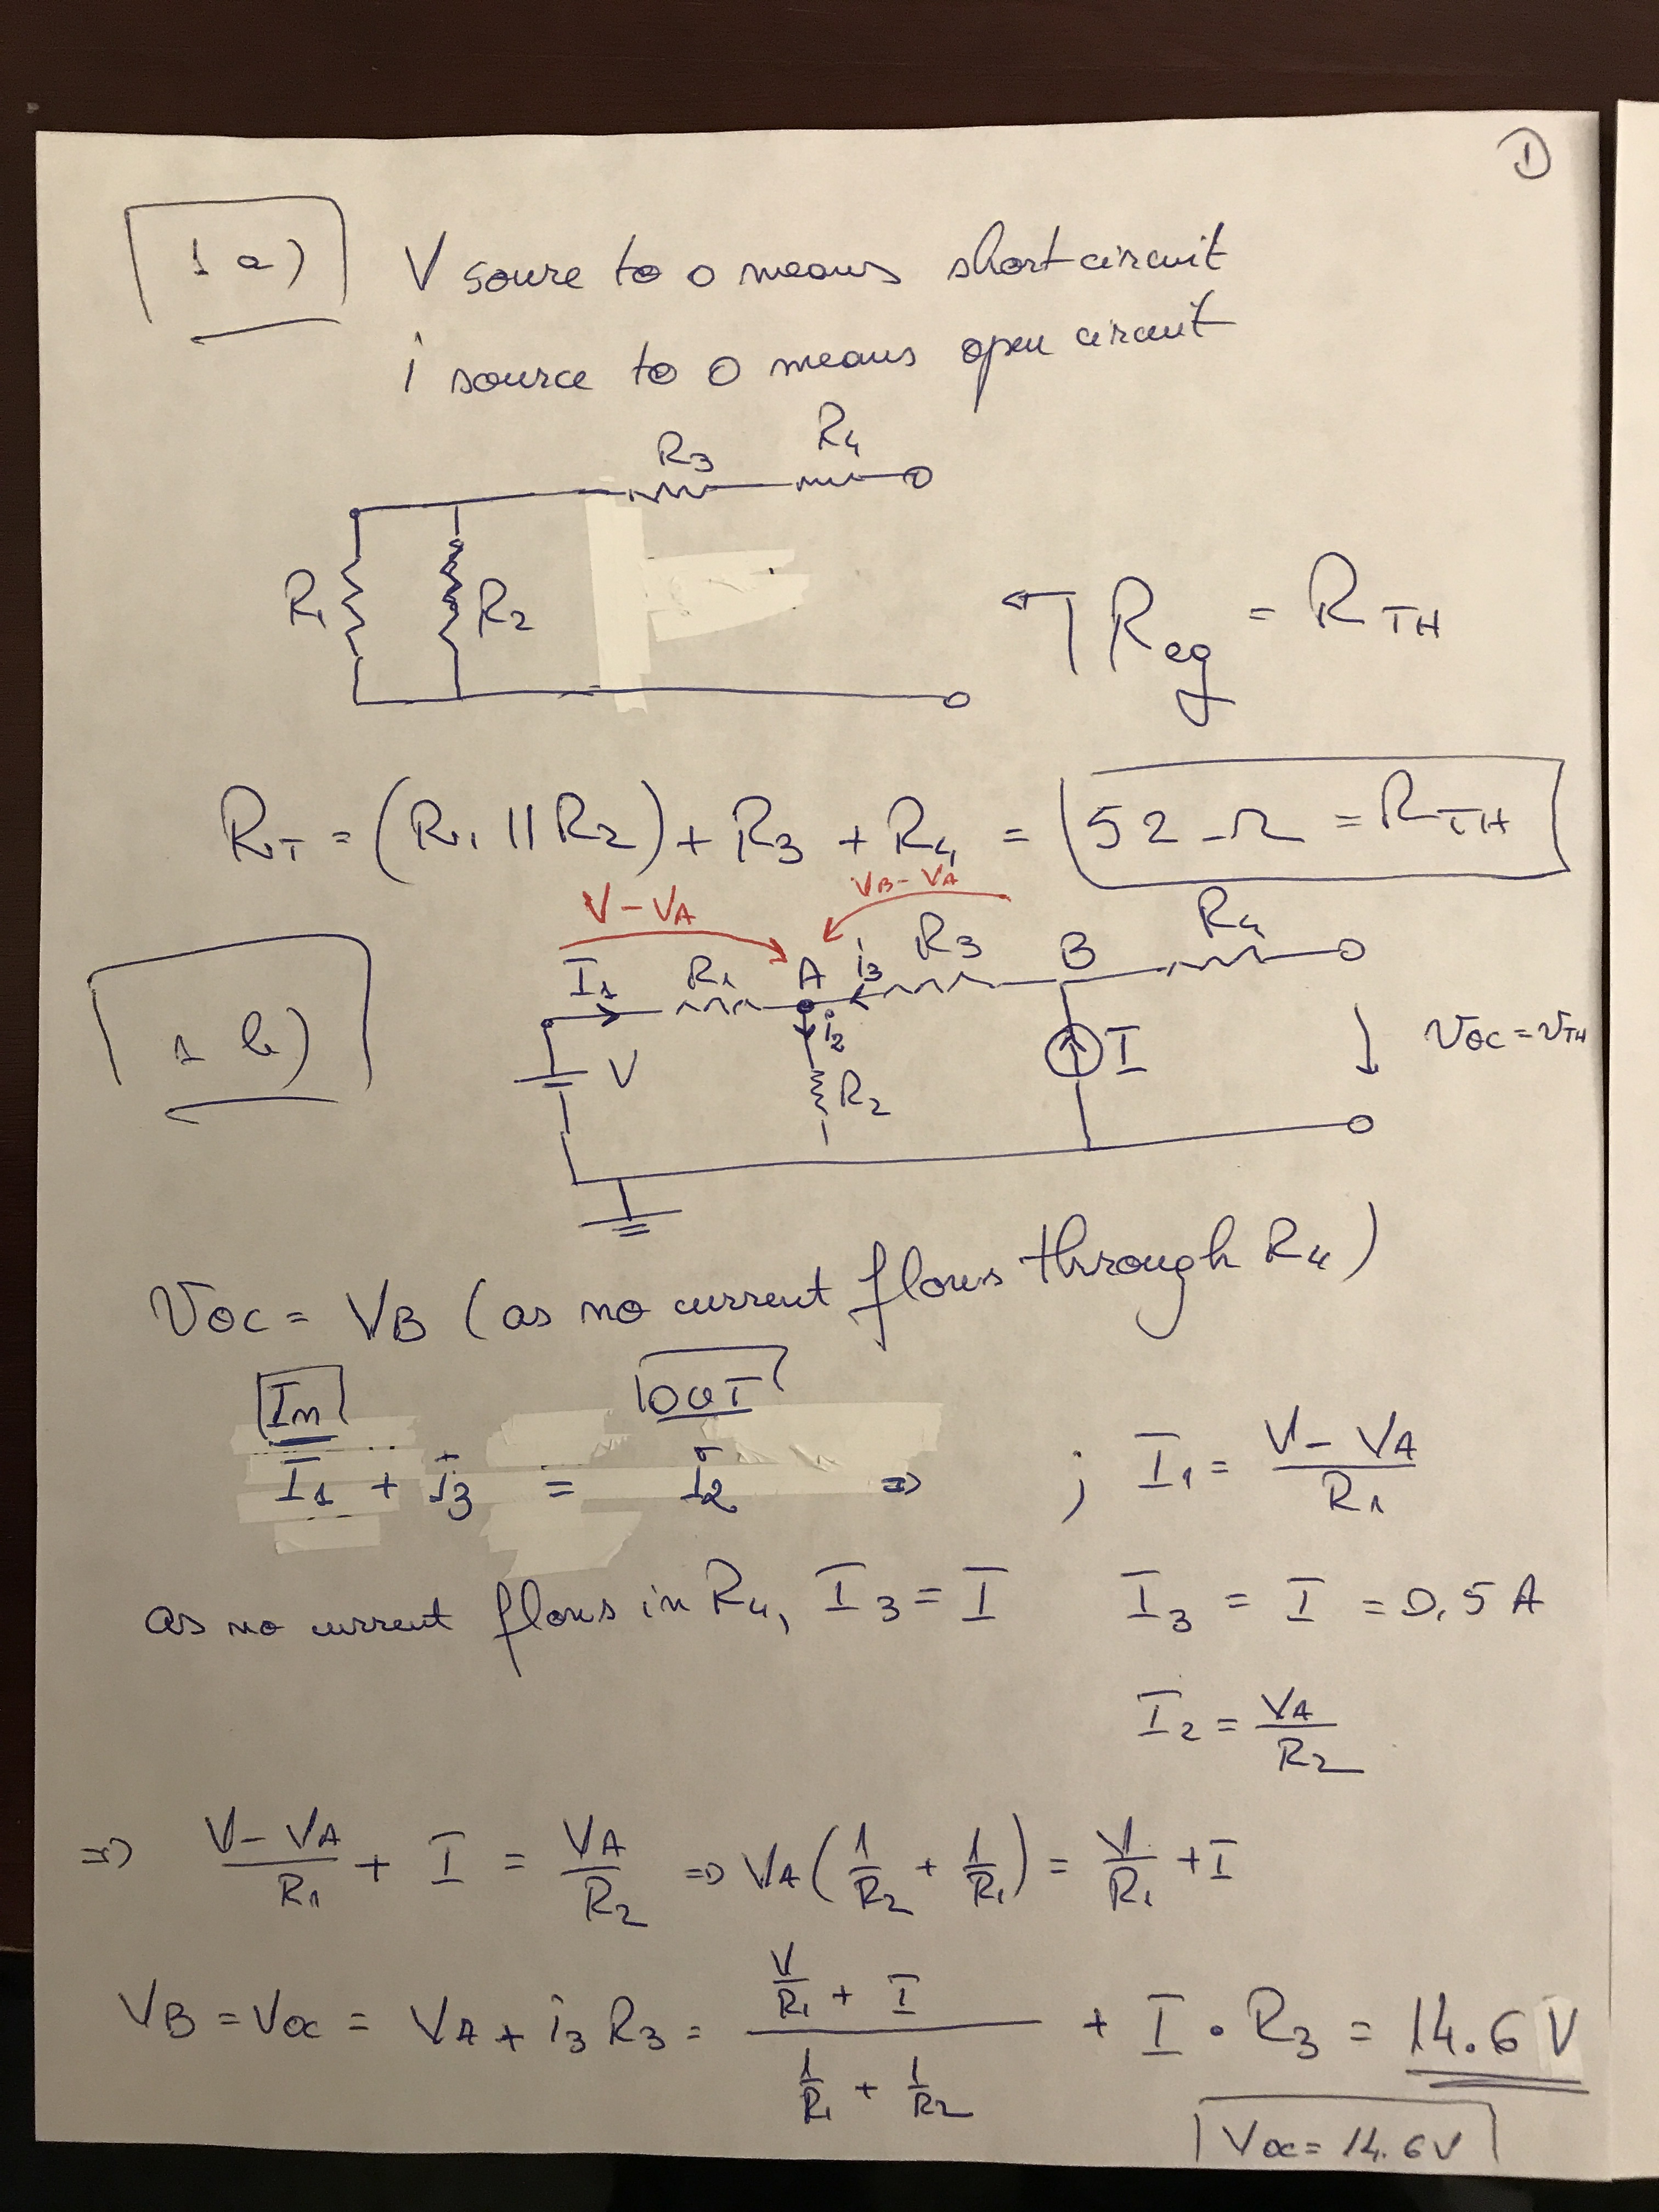 ①
1 a)
V soure to 0 means short circuit
i source to 0 means open circuit
R3 R4
R1 R2
Req = RTH
RT = (R1 || R2) + R3 + R4 = 52 Ω = RTH
V - VA VB - VA
1 b)
I1 R1 A i3 R3 B R4
i2
V R2 I VOC = VTH
VOC = VB (as no current flows through R4)
In OUT
I1 + i3 = i2 => ; I1 = (V - VA)/R1
as no current flows in R4, I3 = I I3 = I = 0.5 A
I2 = VA/R2
=> (V - VA)/R1 + I = VA/R2 => VA(1/R2 + 1/R1) = V/R1 + I
VB = Voc = VA + i3 R3 = (V/R1 + I)/(1/R1 + 1/R2) + I · R3 = 14.6 V
Voc = 14.6 V